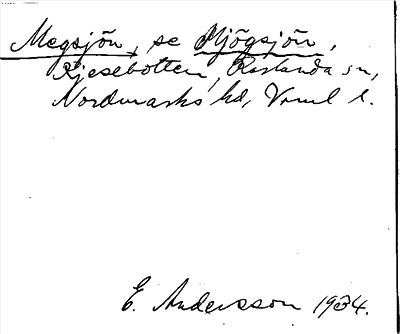 Megsjön, se Mjögsjön,
Kjesebotten, Karlanda sn,
Nordmarks hd, Vrml l.
E. Andersson 1934.